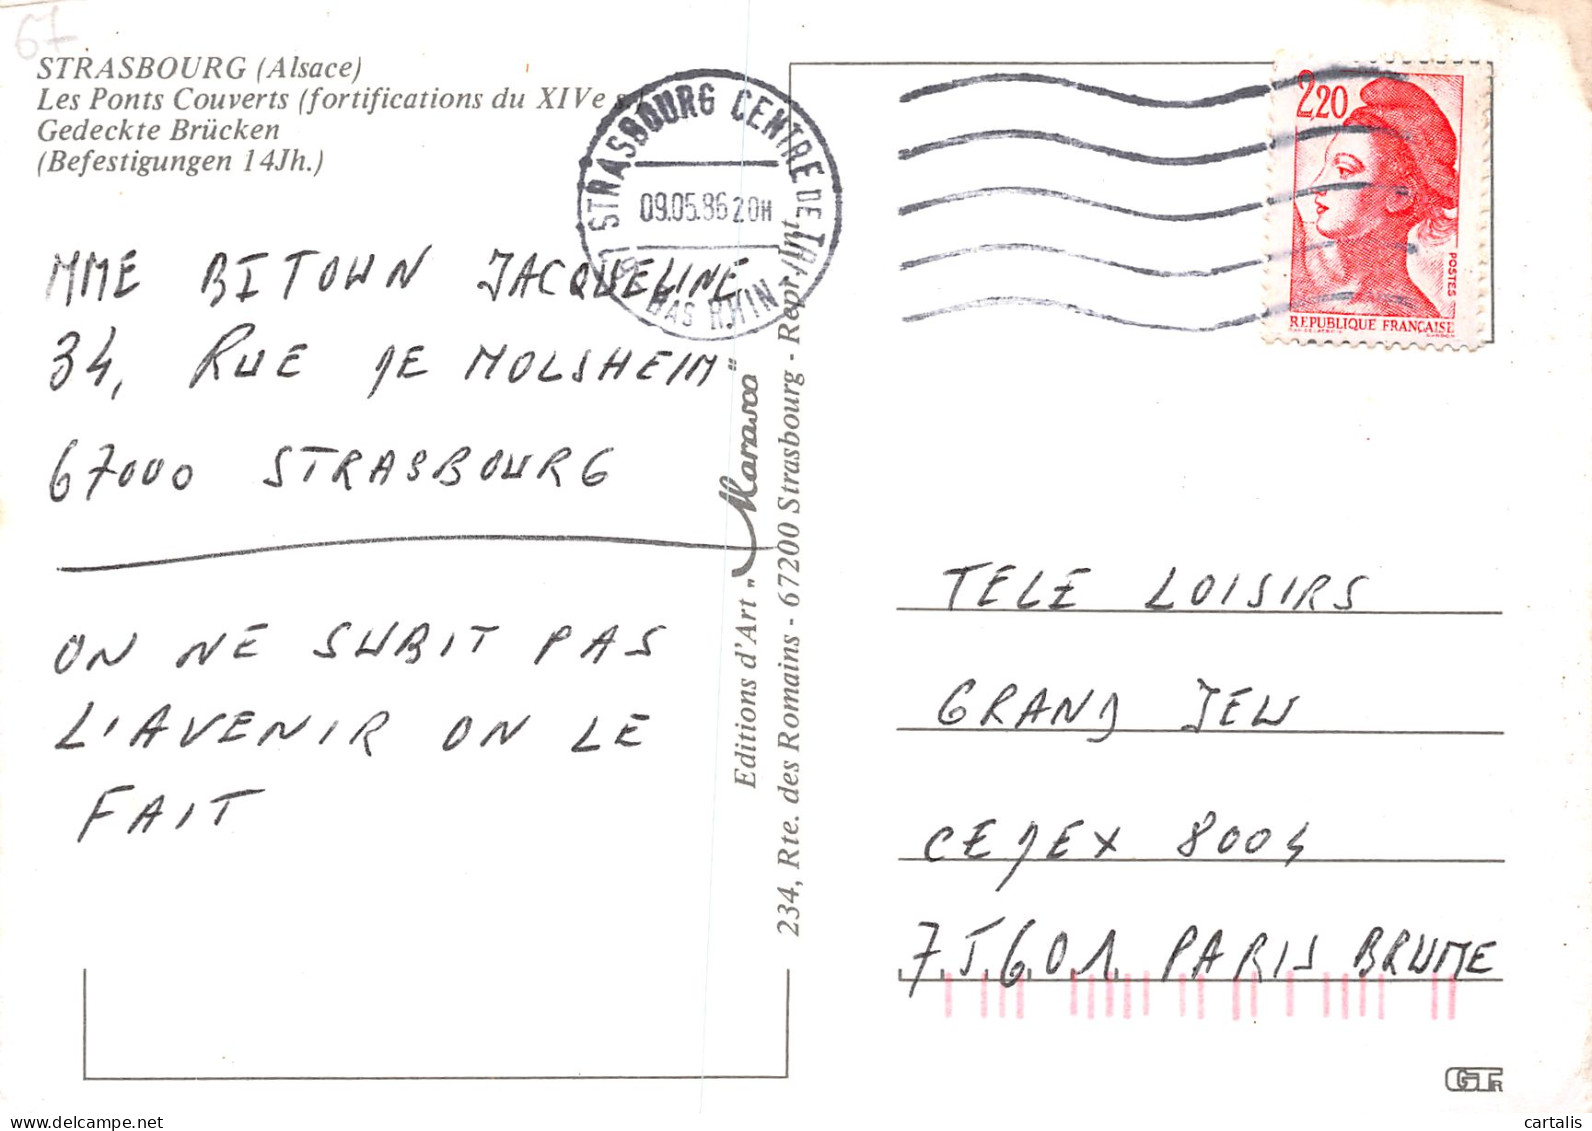 67
STRASBOURG (Alsace)
Les Ponts Couverts (fortifications du XIVe s.)
Gedeckte Brücken
(Befestigungen 14Jh.)
67 STRASBOURG CENTRE DE TRI
09.05.86 20H
BAS RHIN
2,20
POSTES
REPUBLIQUE FRANÇAISE
MME BITOUN JACQUELINE
34, RUE DE MOLSHEIM
67000 STRASBOURG
ON NE SUBIT PAS
L'AVENIR ON LE
FAIT
Editions d'Art "Marasco"
234, Rte. des Romains - 67200 Strasbourg - Repr. int.
TELE LOISIRS
GRAND JEU
CEDEX 8004
75601 PARIS BRUME
GTR
cartalis
www.delcampe.net